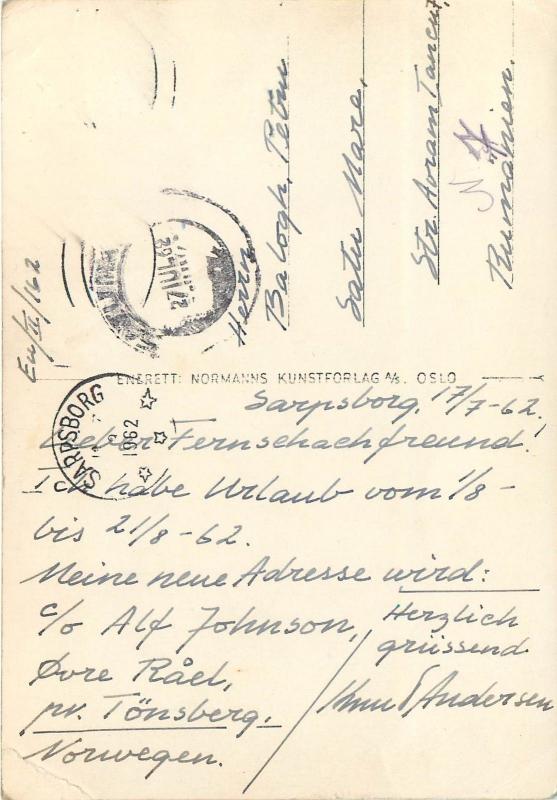 Herrn
Balogh, Petru
Satu Mare,
Str. Avram Iancu 7,
Rumänien.
ENERETT: NORMANNS KUNSTFORLAG A/S. OSLO
SARPSBORG
1962
Sarpsborg, 17/7-62.
Lieber Fernschachfreund!
Ich habe Urlaub vom 1/8 -
bis 21/8 -62.
Meine neue Adresse wird:
c/o Alf Johnson,
Øvre Råel,
pr. Tönsberg.
Norwegen.
Herzlich
grüssend
Andersen